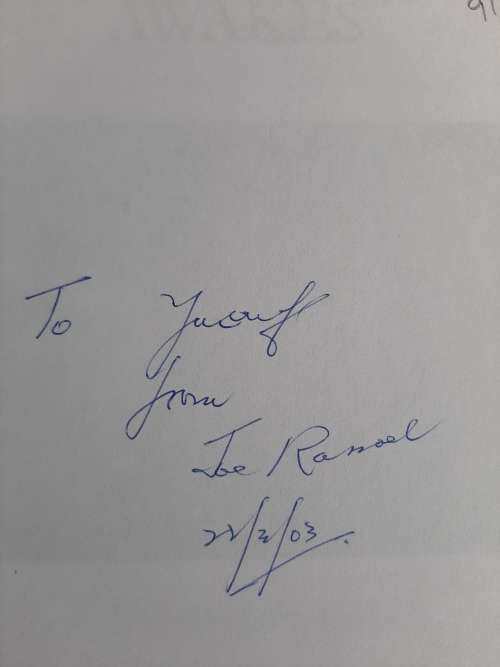 To Yusouf
from
Joe Rassool
22/2/03.